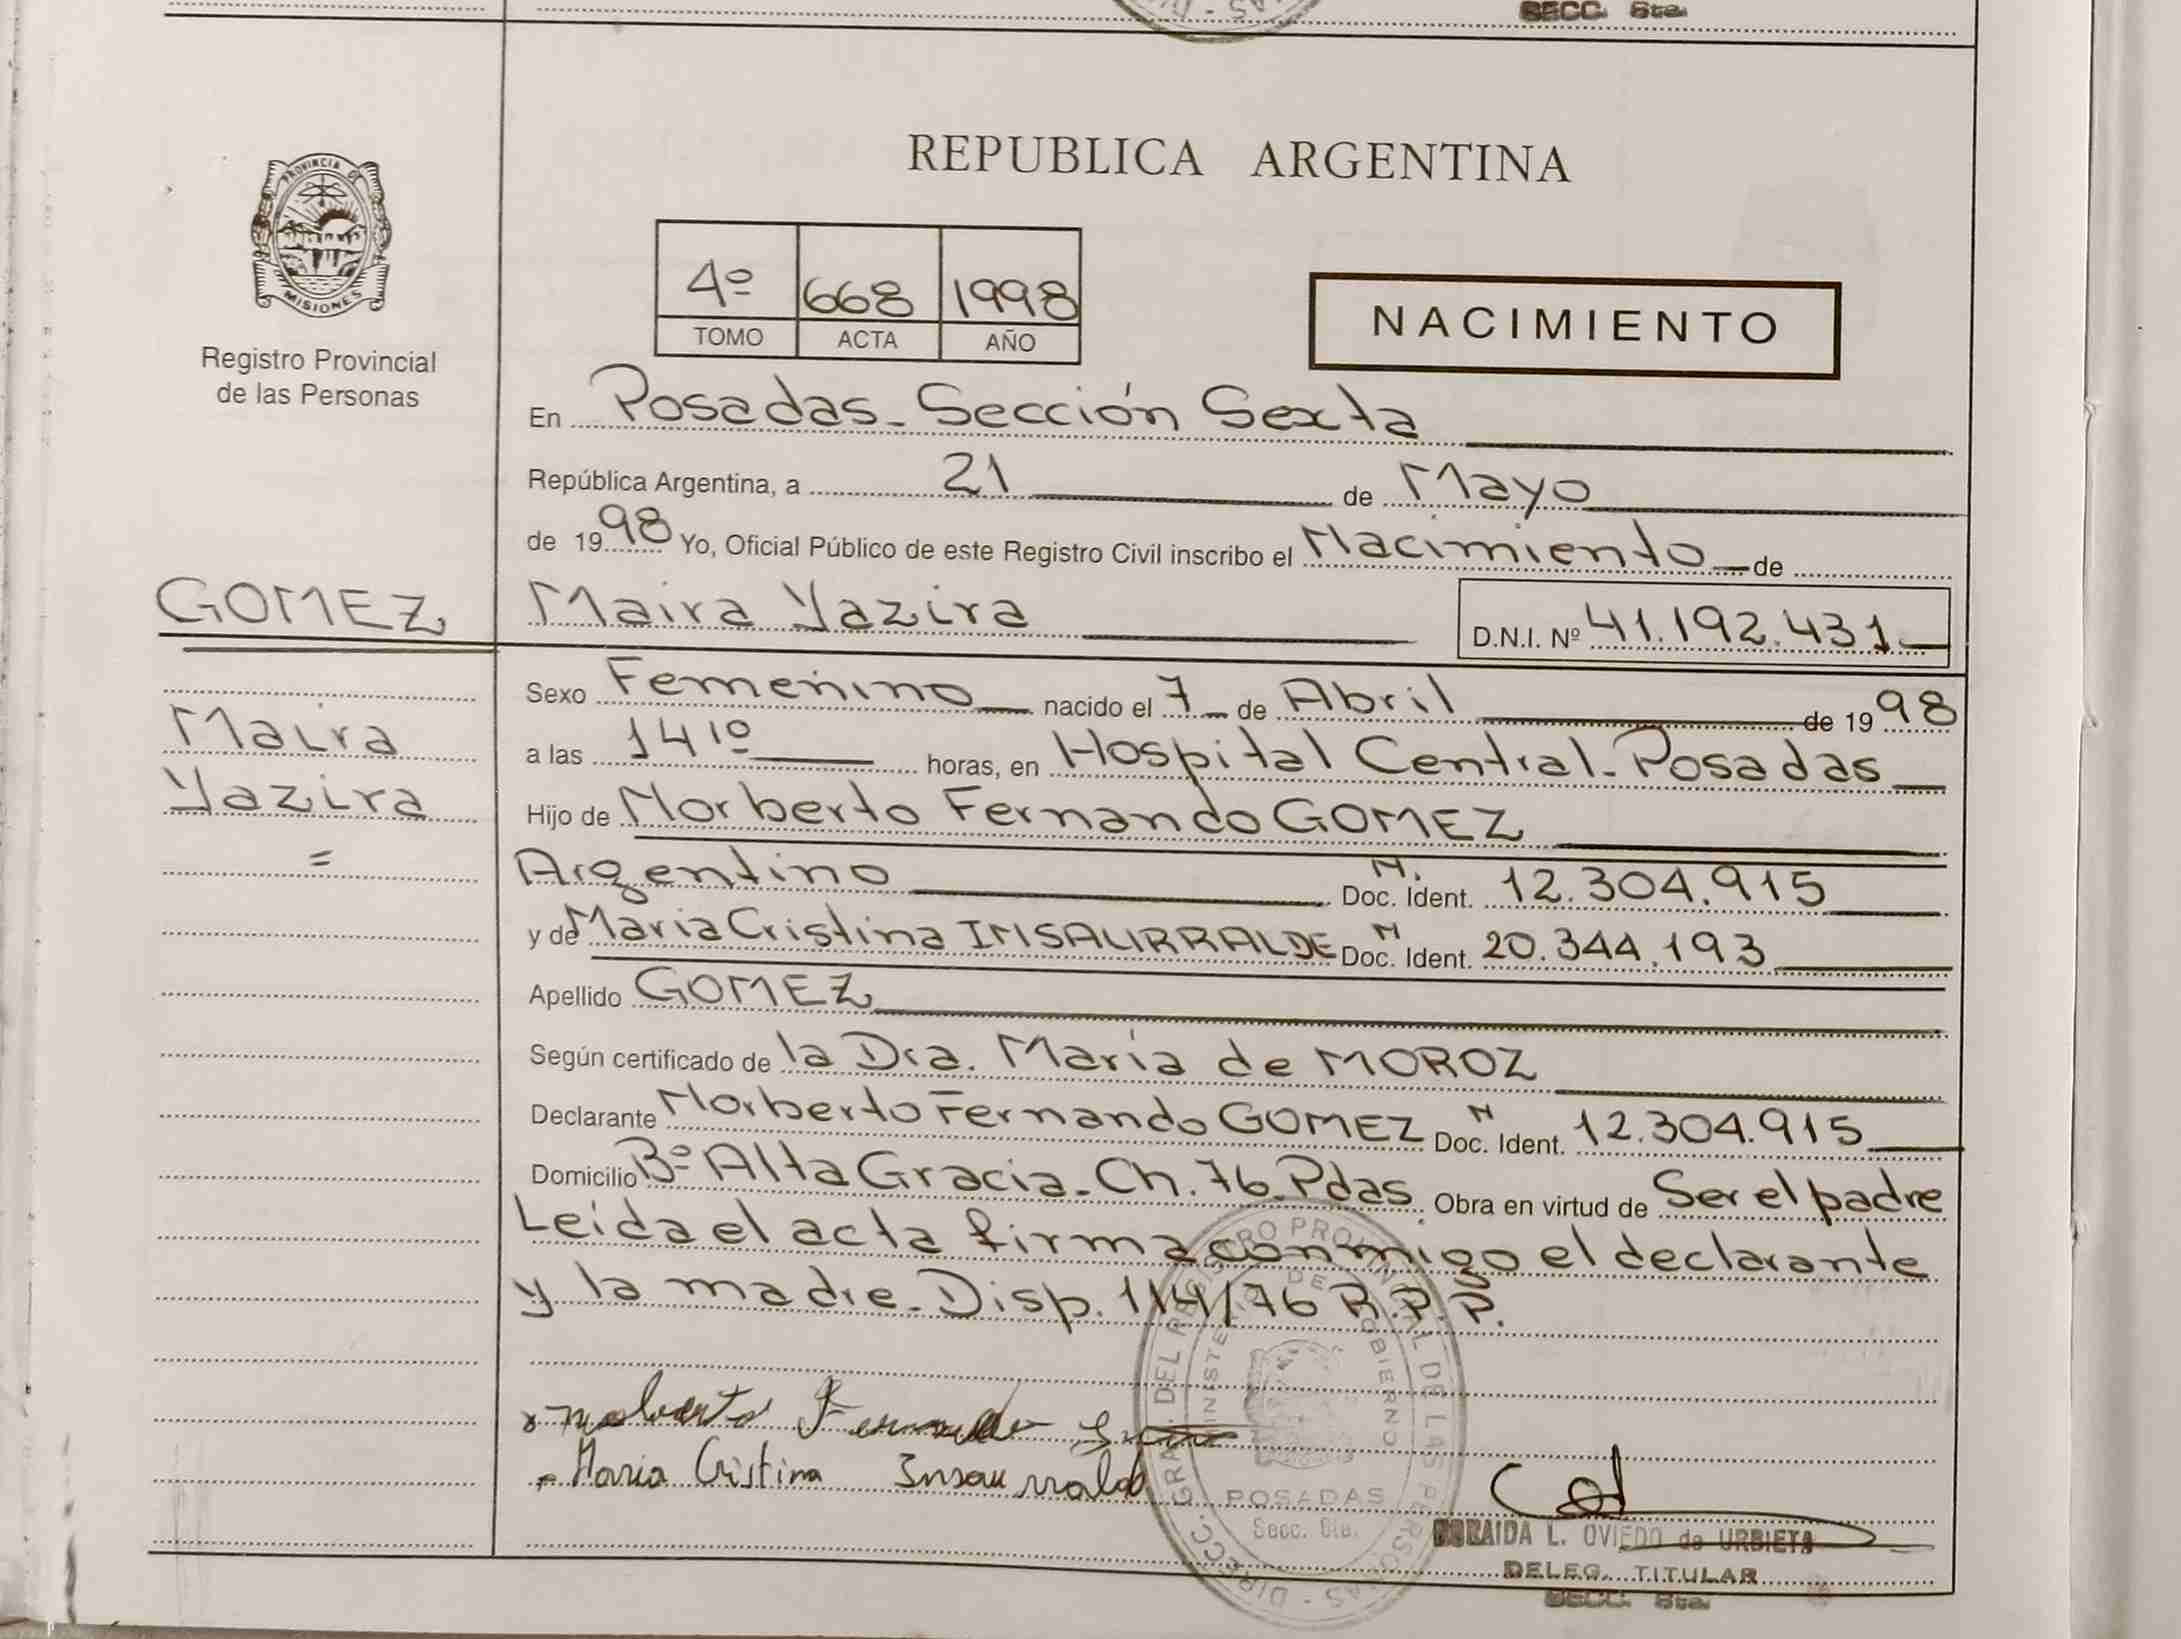 SECC. 6ta.
REPUBLICA ARGENTINA
PROVINCIA DE MISIONES
Registro Provincial
de las Personas
4º 668 1998
TOMO ACTA AÑO
NACIMIENTO
En Posadas - Sección Sexta
República Argentina, a 21 de Mayo
de 1998 Yo, Oficial Público de este Registro Civil inscribo el Nacimiento de
GOMEZ
Maira Yazira D.N.I. Nº 41.192.431
Maira
Yazira
=
Sexo Femenino nacido el 7 de Abril de 1998
a las 14 10 horas, en Hospital Central - Posadas
Hijo de Norberto Fernando GOMEZ
Argentino N. Doc. Ident. 12.304.915
y de Maria Cristina INSAURRALDE N Doc. Ident. 20.344.193
Apellido GOMEZ
Según certificado de la Dra. María de MOROZ
Declarante Norberto Fernando GOMEZ N Doc. Ident. 12.304.915
Domicilio Bº Alta Gracia - Ch. 76 - Pdas. Obra en virtud de Ser el padre
Leída el acta firma conmigo el declarante
y la madre - Disp. 114/76 R.P.P.
Norberto Fernando
Maria Cristina Insaurralde
DIRECC. GRAL. DEL REGISTRO PROVINCIAL DE LAS PERSONAS
MINISTERIO DE GOBIERNO
POSADAS
Secc. 6ta.
L. OVIEDO de URBIETA
DELEG. TITULAR
SECC. 6ta.